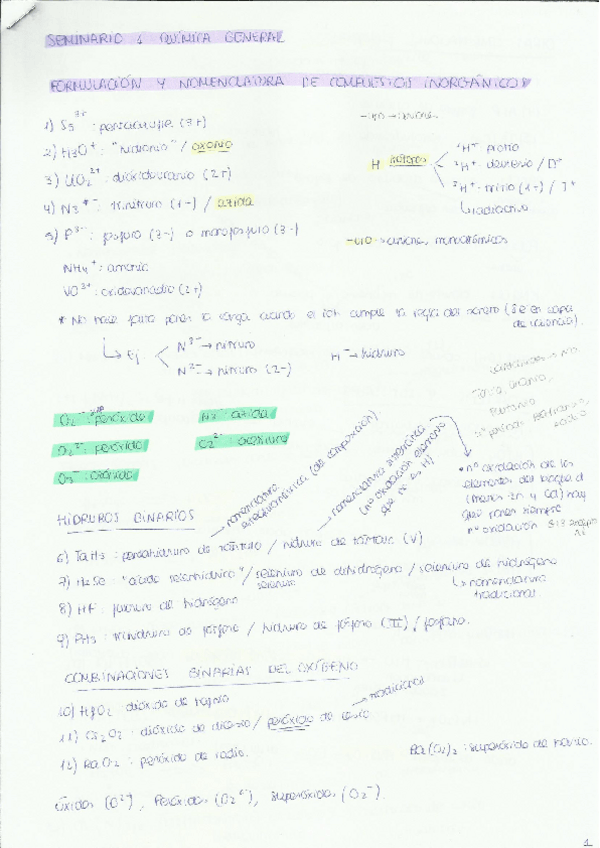 SEMINARIO 1 QUÍMICA GENERAL
FORMULACIÓN Y NOMENCLATURA DE COMPUESTOS INORGÁNICOS
1) S5 2+ : pentaazufre (2+)
-io → aniones
2) H3O+ : "hidronio" / oxonio
3) UO2 2+ : dióxidouranio (2+)
4) N3 - : trinitruro (1-) / azida
5) P3- : fosfuro (3-) o monofosfuro (3-)
H isótopos
1H+ protio
2H+ deuterio / D+
3H+ tritio (1+) / T+
↳ radiactivo
-uro → aniones monoatómicos
NH4+ : amonio
VO3+ : oxidovanadio (3+)
* No hace falta poner la carga cuando el ion cumple la regla del octeto (8 e- en capa
de valencia).
↳ Ej.
N3- → nitruro
N2- → nitruro (2-)
H- → hidruro
O2- : superóxido
N3- : azida
O2 2- : peróxido
C2 2- : acetiluro
O3- : ozónido
→ nomenclatura estequiométrica (de composición).
→ nomenclatura sistemática
(nº oxidación elemento
que no es H)
• nº oxidación de los
elementos del bloque d
(menos Zn y Cd) hay
que poner siempre
nº oxidación
HIDRUROS BINARIOS
6) TaH5 : pentahidruro de tántalo / hidruro de tántalo (V)
7) H2Se : "ácido selenhídrico" / seleniuro de dihidrógeno / seleniuro de hidrógeno
↳ nomenclatura
tradicional
8) HF : fluoruro de hidrógeno
9) PH3 : trihidruro de fósforo / hidruro de fósforo (III) / fosfano.
COMBINACIONES BINARIAS DEL OXÍGENO
10) HfO2 : dióxido de hafnio
11) Cs2O2 : dióxido de dicesio / peróxido de cesio
→ tradicional
12) RaO2 : peróxido de radio.
Ba(O2)2 : superóxido de bario.
Óxidos (O2-), Peróxidos (O2 2-), superóxidos (O2-).
1